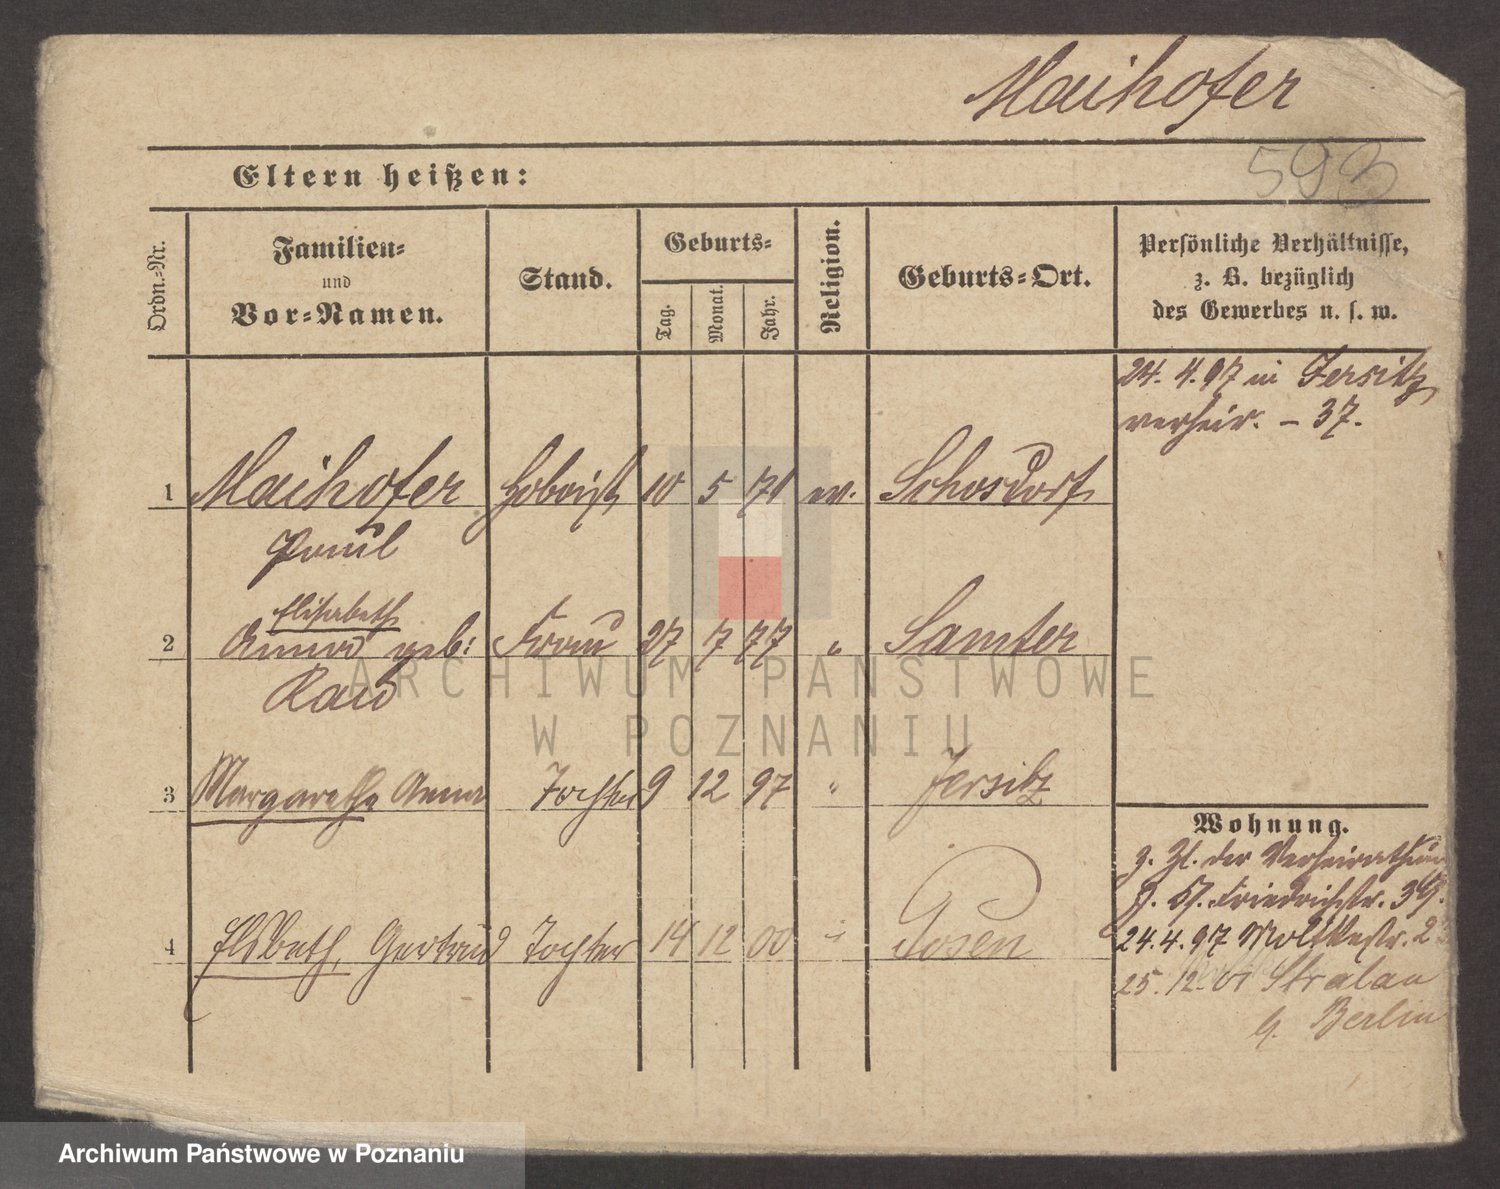 Maihofer
593
Eltern heißen:
Ordn.-Nr.
Familien-
und
Vor-Namen.
Stand.
Geburts-
Tag.
Monat.
Jahr.
Religion.
Geburts-Ort.
Persönliche Verhältnisse,
z. B. bezüglich
des Gewerbes u. s. w.
24. 4. 97 in Jersitz
verheir. – 37.
1 Maihofer Hoboist 10 5 71 ev. Schosdorf
Paul
Elisabeth
2 Anna geb: Frau 27 7 77 " Samter
Raud
3 Margarethe Anna Tochter 9 12 97 " Jersitz
4 Elsbeth, Gertrud Tochter 14 12 00 " Posen
Wohnung.
z. Zt. der Verheirathung
Friedrichstr. 39.
24. 4. 97 Moltkestr.
25. 12. 01 Stralau
b. Berlin
ARCHIWUM PAŃSTWOWE
W POZNANIU
Archiwum Państwowe w Poznaniu